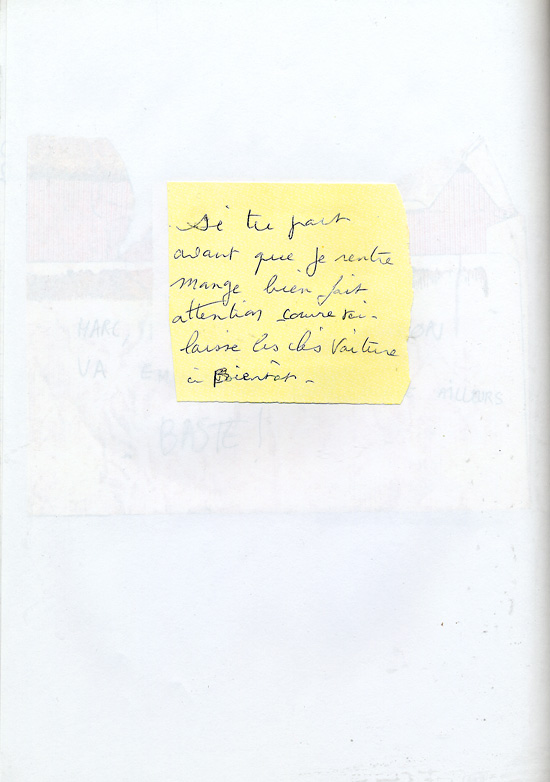 Si tu part
avant que je rentre
mange bien fait
attention couvre toi -
laisse les clés Voiture
à Bientot -
MARC, SI
VA
AILLEURS
BASTE !!